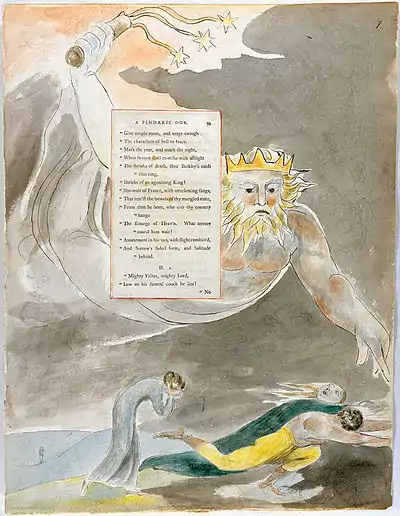 7
A PINDARIC ODE. 59
"Give ample room, and verge enough
"The characters of hell to trace.
"Mark the year, and mark the night,
"When Severn shall re-eccho with affright
"The shrieks of death, thro' Berkley's roofs
"that ring,
"Shrieks of an agonizing King!
"She-wolf of France, with unrelenting fangs,
"That tear'st the bowels of thy mangled mate,
"From thee be born, who o'er thy country
"hangs
"The scourge of Heav'n. What terrors
"round him wait!
"Amazement in his van, with flight combin'd,
"And Sorrow's faded form, and Solitude
"behind.
II. 2.
"Mighty Victor, mighty Lord,
"Low on his funeral couch he lies!
"No